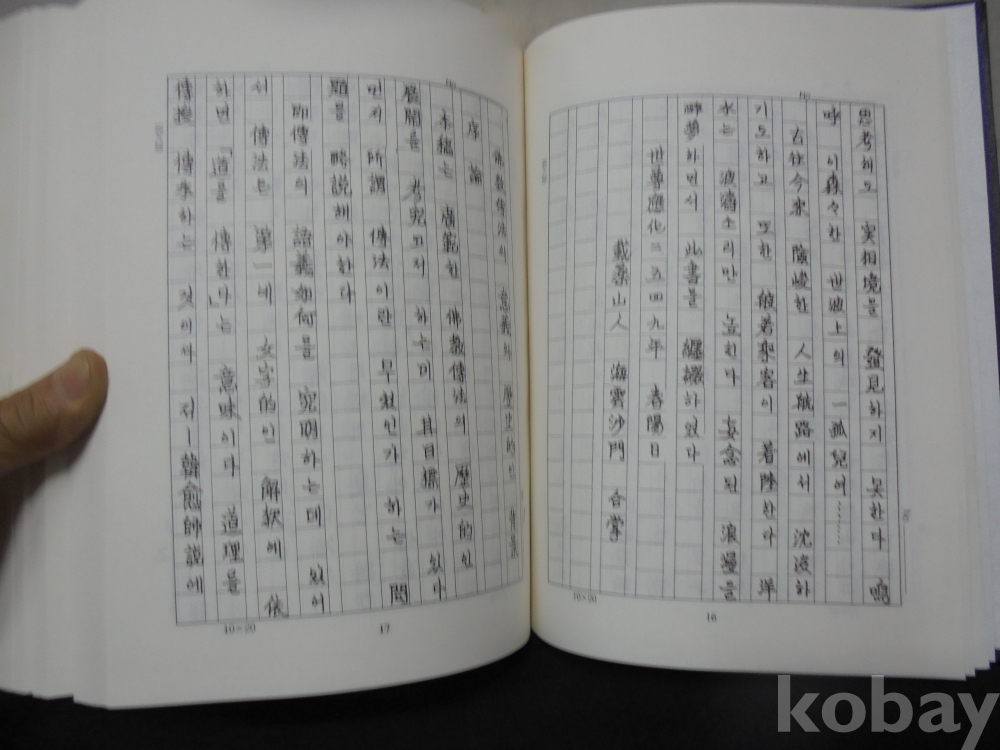 思考해도 実相境을 發見하지 못한다 嗚
呼 이 森々한 世波上의 一孤兒여………
古往今來 險峻한 人生航路에서 沈沒하
기도하고 또한 般若乘客이 着陸한다 洋
水는 波濤소리만 높한다 妄念된 浪漫을
醉夢하면서 此書를 編織하였다
世尊應化二五四九年 春陽日
載藥山人 海雲沙門 合掌
10×20
16
佛教傳法의 意義와 歷史的인
序論
本稿는 廣範한 佛教傳法의 歷史的인
展開를 考究코저 하는데 其目標가 있다
먼저 所謂 傳法이란 무엇인가 하는 問
題를 略說해야한다
即傳法의 語義如何를 究明하는데 있어
서 傳法는 第一에 文字的인 解釈에 依
하면 「道를 傳한다」는 意味이다 道理를
傳授 傳承하는 것이다 저ー韓愈師說에
10×20
17
kobay